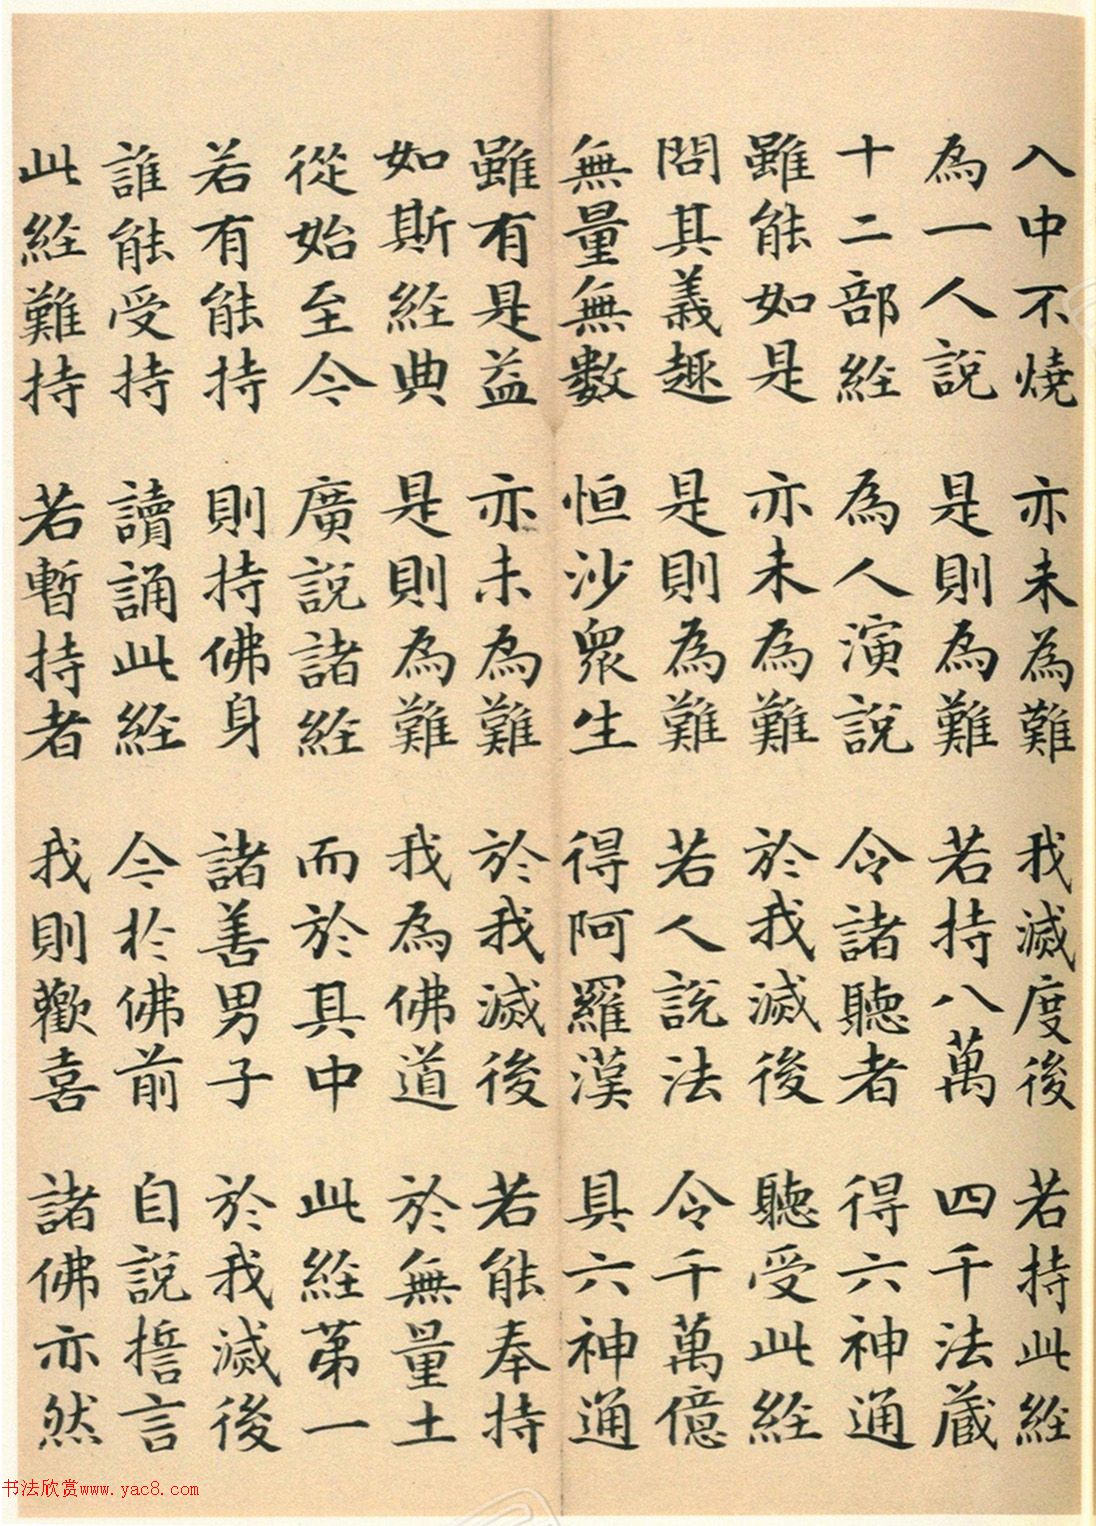 入中不燒 亦未為難 我滅度後 若持此經
為一人說 是則為難 若持八萬 四千法藏
十二部經 為人演說 令諸聽者 得六神通
雖能如是 亦未為難 於我滅後 聽受此經
問其義趣 是則為難 若人說法 令千萬億
無量無數 恒沙眾生 得阿羅漢 具六神通
雖有是益 亦未為難 於我滅後 若能奉持
如斯經典 是則為難 我為佛道 於無量土
從始至今 廣說諸經 而於其中 此經第一
若有能持 則持佛身 諸善男子 於我滅後
誰能受持 讀誦此經 今於佛前 自說誓言
此經難持 若暫持者 我則歡喜 諸佛亦然
书法欣赏www.yac8.com